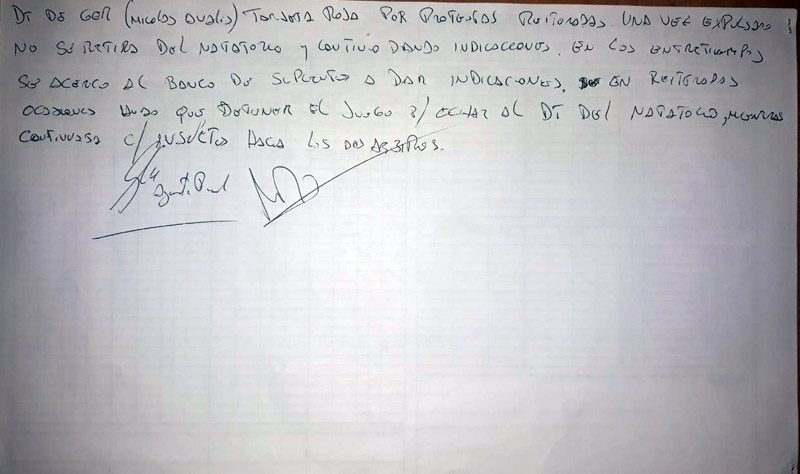 DT DE GER (NICOLAS AVALIS) TARJETA ROJA POR PROTESTAS REITERADAS. UNA VEZ EXPULSADO
NO SE RETIRA DEL NATATORIO Y CONTINUO DANDO INDICACIONES. EN LOS ENTRETIEMPOS
SE ACERCO AL BANCO DE SUPLENTES A DAR INDICACIONES. EN REITERADAS
OCASIONES HUBO QUE DETENER EL JUEGO P/ ECHAR AL DT DEL NATATORIO, MIENTRAS
CONTINUABA C/ INSULTOS HACIA LOS DOS ARBITROS.